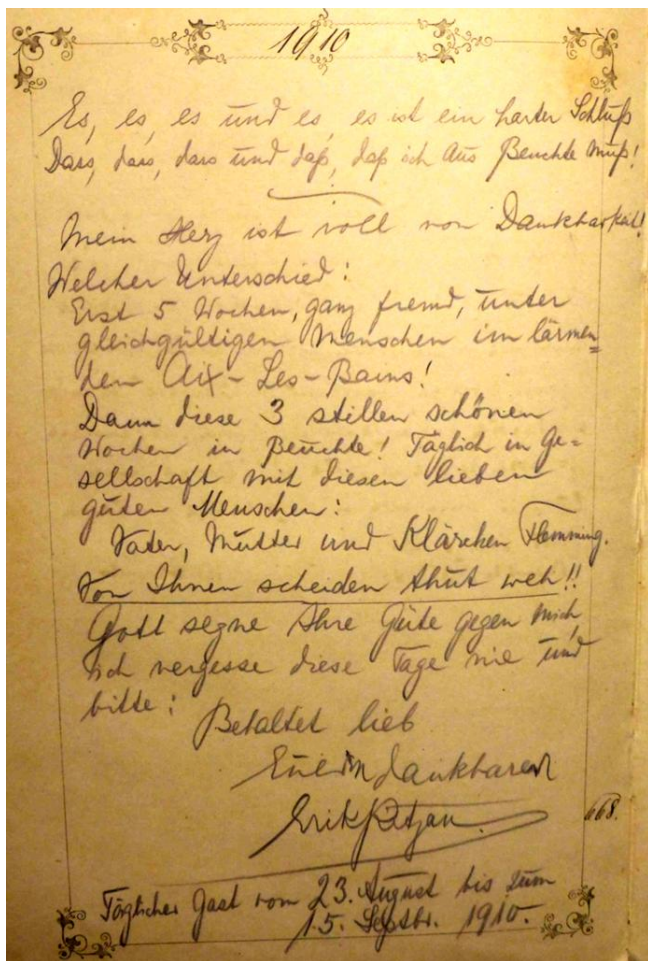 1910
Es, es, es und es, es ist ein harter Schluß
Dass, dass, dass und daß, daß ich aus Beuchte muß!
Mein Herz ist voll von Dankbarkeit!
Welcher Unterschied:
Erst 5 Wochen, ganz fremd, unter
gleichgültigen Menschen im lärmen=
den Aix-Les-Bains!
Dann diese 3 stillen schönen
Wochen in Beuchte! Täglich in Ge=
sellschaft mit diesen lieben
guten Menschen:
Vater, Mutter und Klärchen Flemming.
Von Ihnen scheiden thut weh!!
Gott segne Ihre Güte gegen mich,
ich vergesse diese Tage nie und
bitte:
Behaltet lieb
Euern dankbaren
Erik
668.
Täglicher Gast vom 23. August bis zum
15. Septbr. 1910.